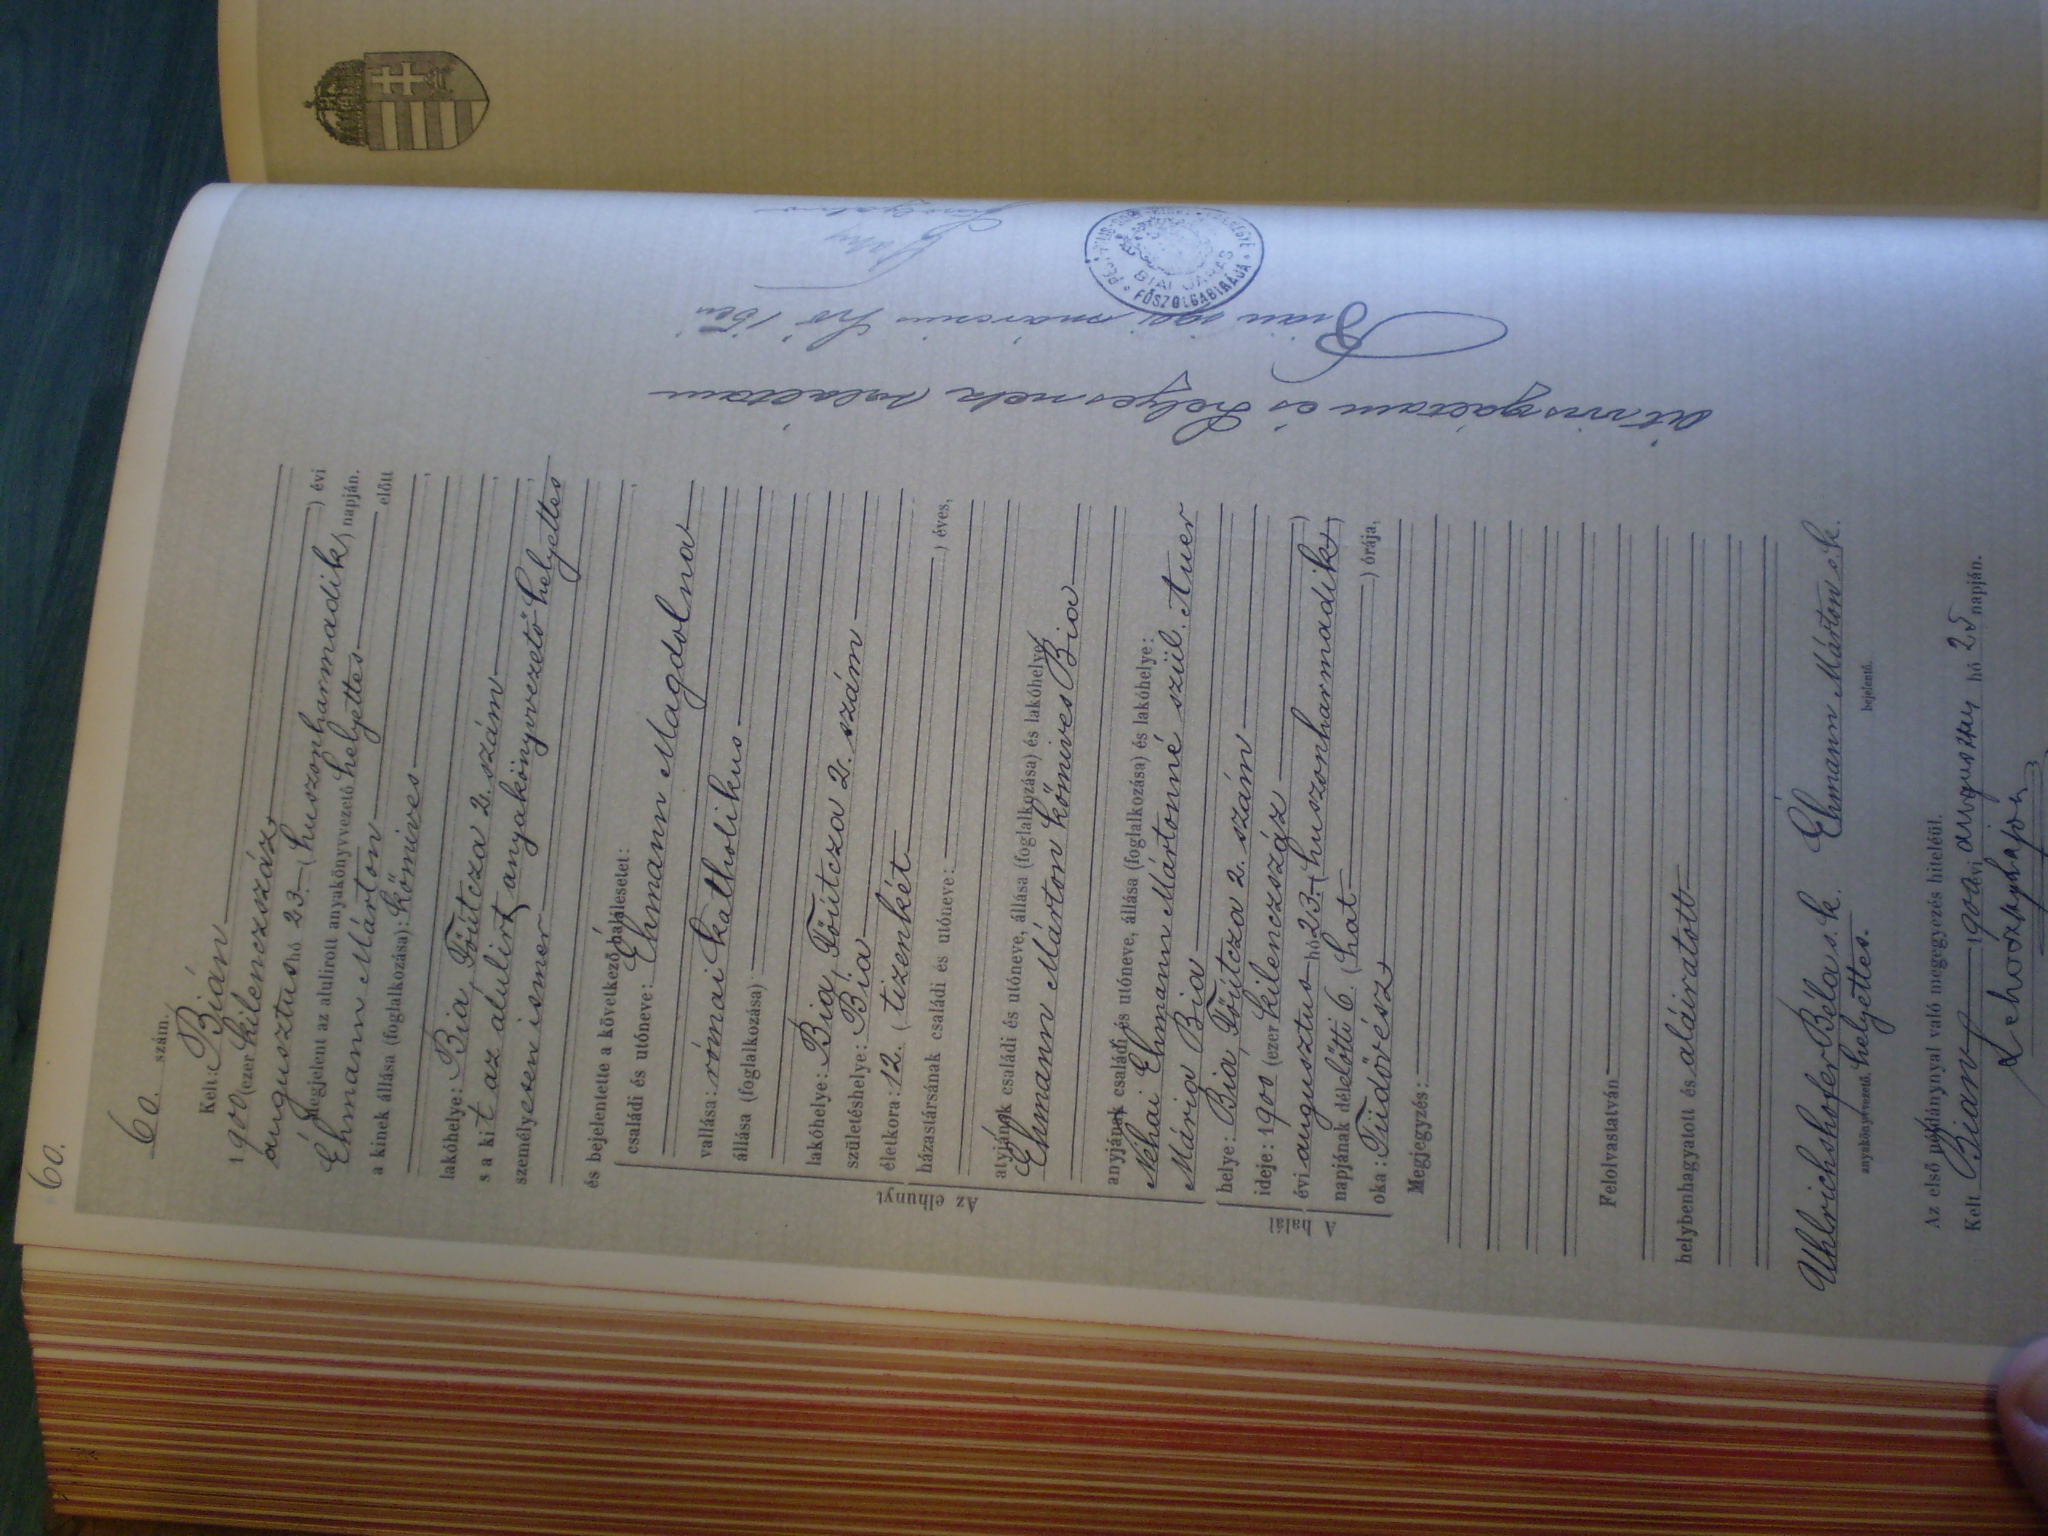 60.
60. szám.
Kelt: Bián
1900 (ezer kilenczszáz)
augusztus hó 23. (huszonharmadik) évi napján.
Megjelent az alulirott anyakönyvezető helyettes előtt
Ehmann Márton
a kinek állása (foglalkozása): kőmives
lakóhelye: Bia, Főútcza 2. szám
s a kit az alulirt anyakönyvvezető helyettes
személyesen ismer
és bejelentette a következő halálesetet:
Az elhunyt
családi és utóneve: Ehmann Magdolna
vallása: római katholikus
állása (foglalkozása)
lakóhelye: Bia, Főútcza 2. szám
születéshelye: Bia
életkora: 12. (tizenkét) éves,
házastársának családi és utóneve:
atyjának családi és utóneve, állása (foglalkozása) és lakóhelye:
Ehmann Márton kőmives Bia
anyjának családi és utóneve, állása (foglalkozása) és lakóhelye:
Néhai Ehmann Mártonné szül. Auer
Mária Bia
A halál
helye: Bia, Főútcza 2. szám
ideje: 1900 (ezer kilenczszáz)
évi augusztus hó 23. (huszonharmadik)
napjának délelőtti 6. (hat) órája,
oka: Tüdővész
Megjegyzés:
Felolvastatván
helybenhagyatott és aláiratott
Uhlrichshofer Béla s. k. Ehmann Márton s. k.
anyakönyvvezető helyettes. bejelentő.
Az első példánynyal való megegyezés hiteléül.
Kelt Bián 1900 évi augusztus hó 25 napján.
átvizsgáltam és helyesnek találtam
Bián 1901 márczius hó 15én
BIAI JÁRÁS
FŐSZOLGABIRÁJA